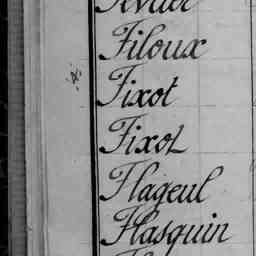 Filoux
Fixot
Fixot
Flageul
Flasquin